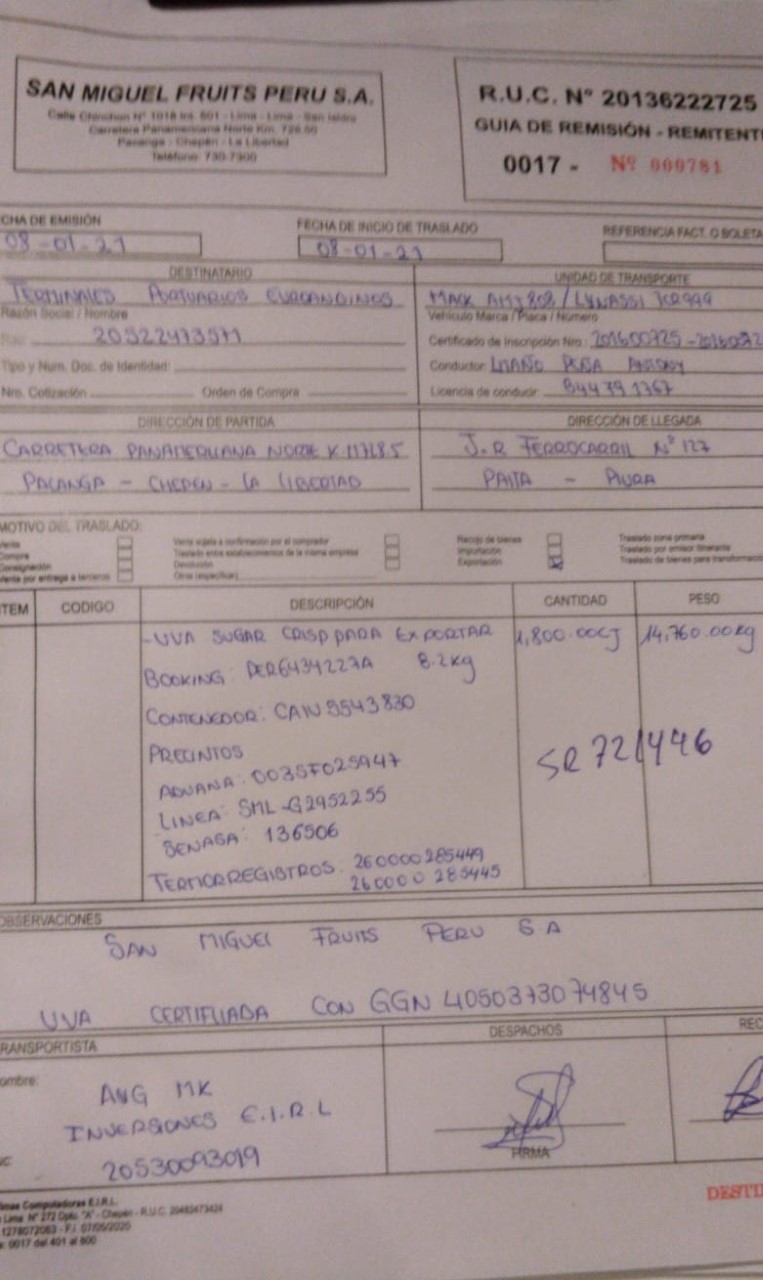 SAN MIGUEL FRUITS PERU S.A.
Calle Chinchon N° 1018 Int. 601 - Lima - Lima - San Isidro
Carretera Panamericana Norte Km.
Pacanga - Chepén - La Libertad
Teléfono: 730-7300
R.U.C. N° 20136222725
GUIA DE REMISIÓN - REMITENT
0017 - Nº 000781
CHA DE EMISIÓN
08-01-21
FECHA DE INICIO DE TRASLADO
08-01-21
REFERENCIA FACT. O BOLETA
DESTINATARIO
TERMINALES PORTUARIOS EUROANDINOS
Razón Social / Nombre
20522473571
Tipo y Num. Doc. de Identidad:
Nro. Cotización Orden de Compra
UNIDAD DE TRANSPORTE
MACK
Vehículo Marca / Placa / Número
Certificado de Inscripción Nro.:
Conductor:
Licencia de conducir:
DIRECCIÓN DE PARTIDA
CARRETERA PANAMERICANA NORTE
PACANGA - CHEPEN - LA LIBERTAD
DIRECCIÓN DE LLEGADA
J.R FERROCARRIL N° 127
PAITA - PIURA
MOTIVO DEL TRASLADO:
Venta
Compra
Consignación
Venta por entrega a terceros
Venta sujeta a confirmación por el comprador
Traslado entre establecimientos de la misma empresa
Devolución
Otros (especificar)
Recojo de bienes
Importación
Exportación
Traslado zona primaria
Traslado por emisor itinerante
Traslado de bienes para transformació
TEM CODIGO DESCRIPCIÓN CANTIDAD PESO
-UVA SUGAR CRISP PARA EXPORTAR 1,800.00CJ 14,760.00Kg
BOOKING: PER6434227A 8.2kg
CONTENEDOR: CAIU 5543830
PRECINTOS
ADUANA: 0035F025947
SR 721446
LINEA: SML-G2952255
SENASA: 136506
TERMORREGISTROS: 260000285449
260000 285445
OBSERVACIONES
SAN MIGUEL FRUITS PERU S A
UVA CERTIFICADA CON GGN 4050373074845
RANSPORTISTA
ombre:
A&G MK
INVERSIONES E.I.R.L
20530093019
DESPACHOS
FIRMA
REC
DESTI
Computadoras E.I.R.L.
Lima N° 272 Dpto. "A" - Chepén - R.U.C. 20482473424
1278072063 - F.I. 07/05/2020
0017 del 401 al 800